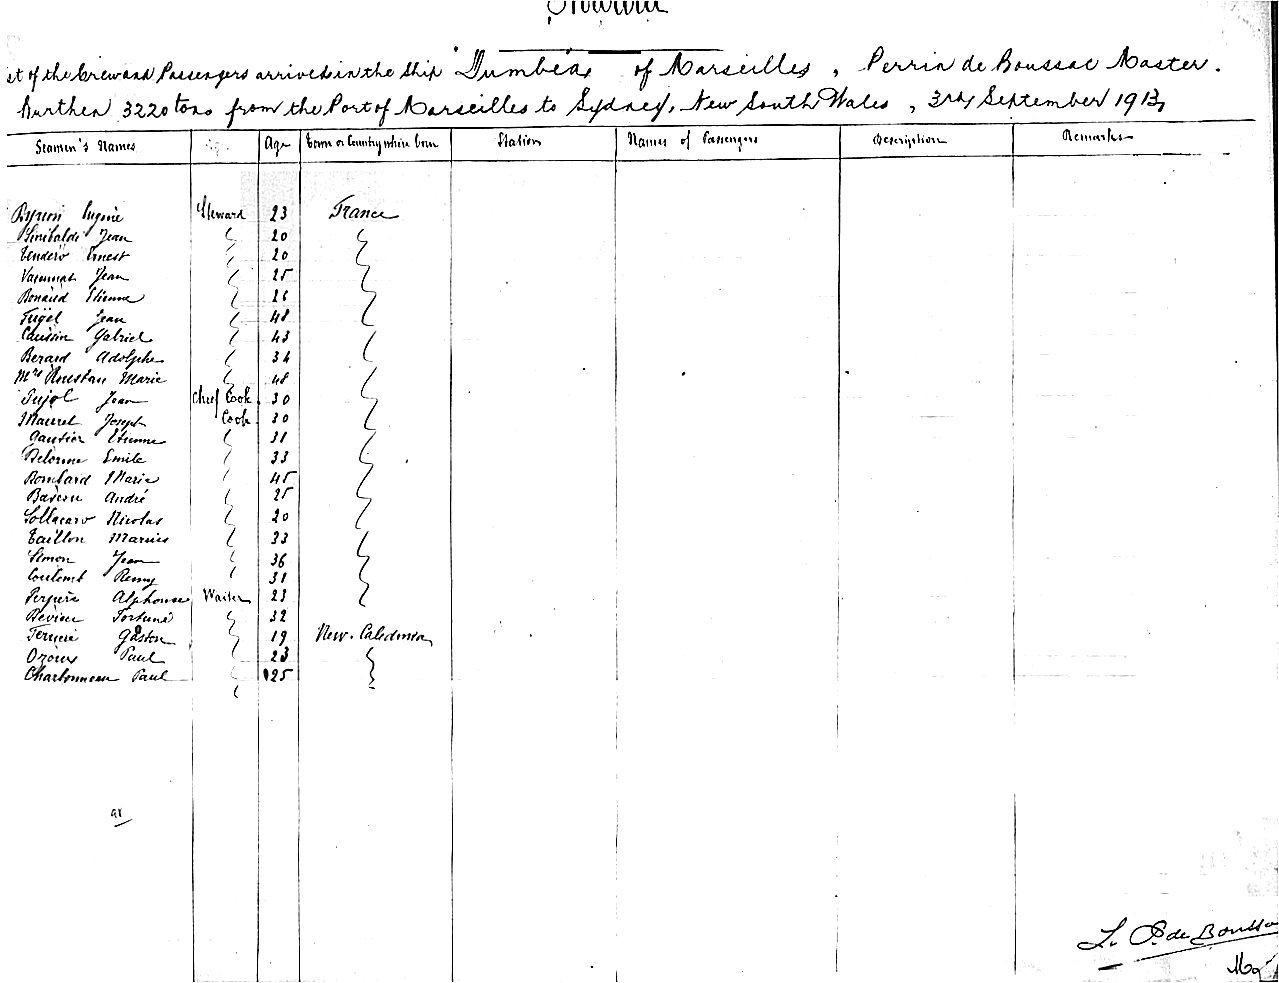 st of the Crew and Passengers arrived in the Ship "Dumbéa" of Marseilles, Perrin de Boussac Master.
Burthen 3220 tons from the Port of Marseilles to Sydney, New South Wales, 3rd September 1913
Seamen's Names Age Town or Country where born Station Names of Passengers Description Remarks
Eugène Steward 23 France
Sinibaldi Jean " 20 "
Tendero Ernest " 20 "
Jean " 25 "
Bonaud Etienne " 26 "
Jean " 48 "
Caussin Gabriel " 43 "
Berard Adolphe " 34 "
Mrs Roustan Marie " 48 "
Pujol Jean Chief Cook 30 "
Maurel Joseph Cook 30 "
Gautier Etienne " 31 "
Delorme Emile " 33 "
Bombard Marie " 45 "
André " 25 "
Sollacaro Nicolas " 20 "
Taillon Marius " 33 "
Simon Jean " 36 "
Coulomb Remy " 31 "
Alphonse Waiter 23 "
Devieu Fortuné " 32
Gaston " 19 New. Caledonia
Ozoux Paul " 23 "
Charbonneau Paul " 25 "
98
L. P. de Boussa